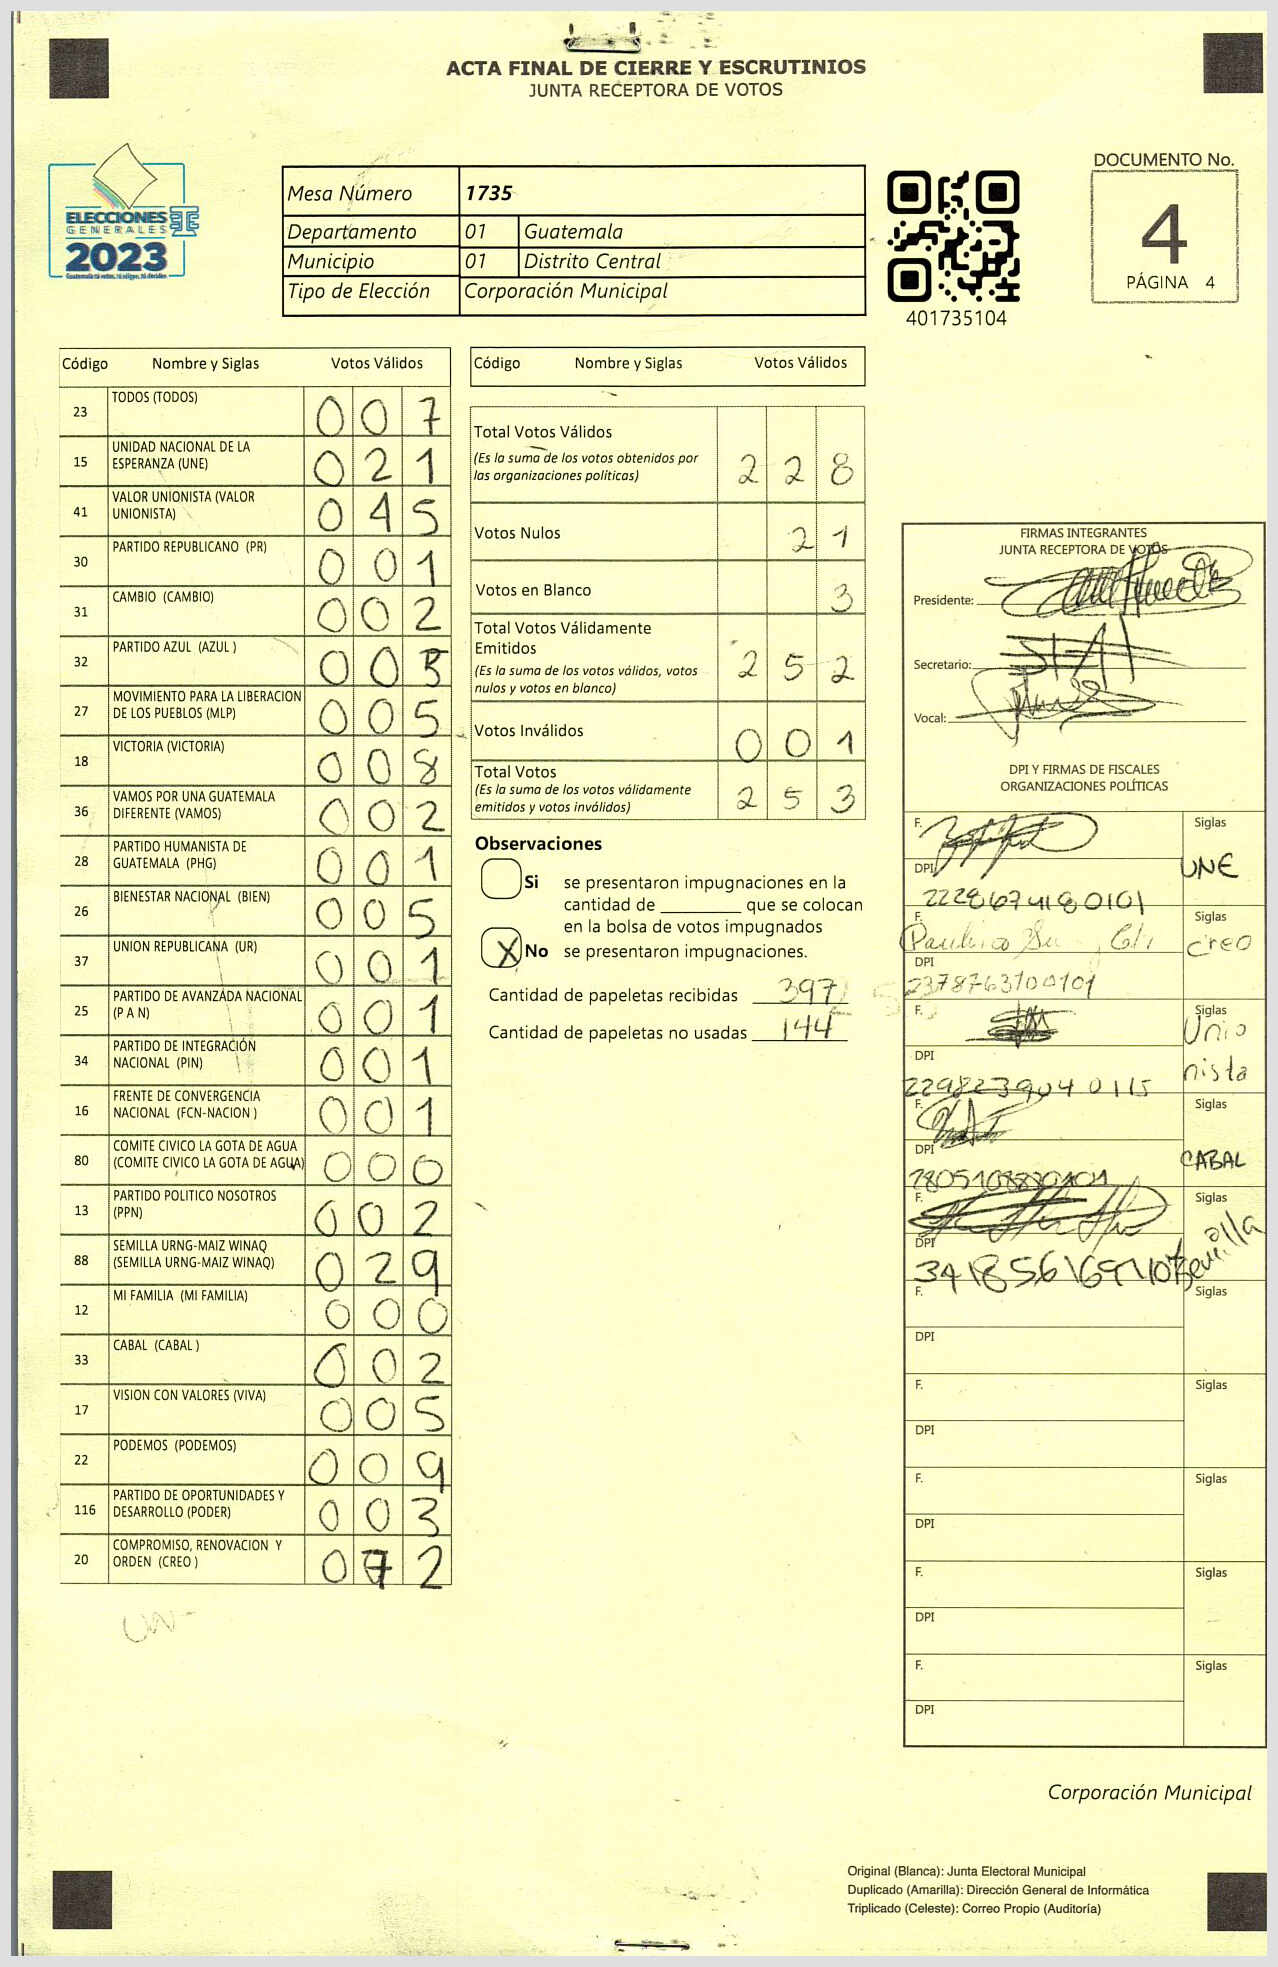 ACTA FINAL DE CIERRE Y ESCRUTINIOS
JUNTA RECEPTORA DE VOTOS
ELECCIONES
GENERALES
2023
Mesa Número 1735
Departamento 01 Guatemala
Municipio 01 Distrito Central
Tipo de Elección Corporación Municipal
401735104
DOCUMENTO No.
4
PÁGINA 4
Código Nombre y Siglas Votos Válidos
23 TODOS (TODOS) 0 0 7
15 UNIDAD NACIONAL DE LA
ESPERANZA (UNE) 0 2 1
41 VALOR UNIONISTA (VALOR
UNIONISTA) 0 4 5
30 PARTIDO REPUBLICANO (PR) 0 0 1
31 CAMBIO (CAMBIO) 0 0 2
32 PARTIDO AZUL (AZUL ) 0 0
27 MOVIMIENTO PARA LA LIBERACION
DE LOS PUEBLOS (MLP) 0 0 5
18 VICTORIA (VICTORIA) 0 0 8
36 VAMOS POR UNA GUATEMALA
DIFERENTE (VAMOS) 0 0 2
28 PARTIDO HUMANISTA DE
GUATEMALA (PHG) 0 0 1
26 BIENESTAR NACIONAL (BIEN) 0 0 5
37 UNION REPUBLICANA (UR) 0 0 1
25 PARTIDO DE AVANZADA NACIONAL
(P A N) 0 0 1
34 PARTIDO DE INTEGRACIÓN
NACIONAL (PIN) 0 0 1
16 FRENTE DE CONVERGENCIA
NACIONAL (FCN-NACION ) 0 0 1
80 COMITE CIVICO LA GOTA DE AGUA
(COMITE CIVICO LA GOTA DE AGUA) 0 0 0
13 PARTIDO POLITICO NOSOTROS
(PPN) 0 0 2
88 SEMILLA URNG-MAIZ WINAQ
(SEMILLA URNG-MAIZ WINAQ) 0 2 9
12 MI FAMILIA (MI FAMILIA) 0 0 0
33 CABAL (CABAL ) 0 0 2
17 VISION CON VALORES (VIVA) 0 0 5
22 PODEMOS (PODEMOS) 0 0 9
116 PARTIDO DE OPORTUNIDADES Y
DESARROLLO (PODER) 0 0 3
20 COMPROMISO, RENOVACION Y
ORDEN (CREO ) 0 7 2
Código Nombre y Siglas Votos Válidos
Total Votos Válidos
(Es la suma de los votos obtenidos por
las organizaciones políticas) 2 2 8
Votos Nulos 2 1
Votos en Blanco 3
Total Votos Válidamente
Emitidos
(Es la suma de los votos válidos, votos
nulos y votos en blanco) 2 5 2
Votos Inválidos 0 0 1
Total Votos
(Es la suma de los votos válidamente
emitidos y votos inválidos) 2 5 3
Observaciones
Si se presentaron impugnaciones en la
cantidad de ________ que se colocan
en la bolsa de votos impugnados
X No se presentaron impugnaciones.
Cantidad de papeletas recibidas 397
Cantidad de papeletas no usadas 144
FIRMAS INTEGRANTES
JUNTA RECEPTORA DE VOTOS
Presidente:
Secretario:
Vocal:
DPI Y FIRMAS DE FISCALES
ORGANIZACIONES POLÍTICAS
F. Siglas
DPI UNE
2228674180101
F. Siglas
creo
DPI
2378763100101
F. Siglas
Unio
nista
DPI
2298239040115
F. Siglas
DPI CABAL
2805108880101
F. Siglas
DPI Semilla
F. Siglas
DPI
F. Siglas
DPI
F. Siglas
DPI
F. Siglas
DPI
F. Siglas
DPI
Corporación Municipal
Original (Blanca): Junta Electoral Municipal
Duplicado (Amarilla): Dirección General de Informática
Triplicado (Celeste): Correo Propio (Auditoría)